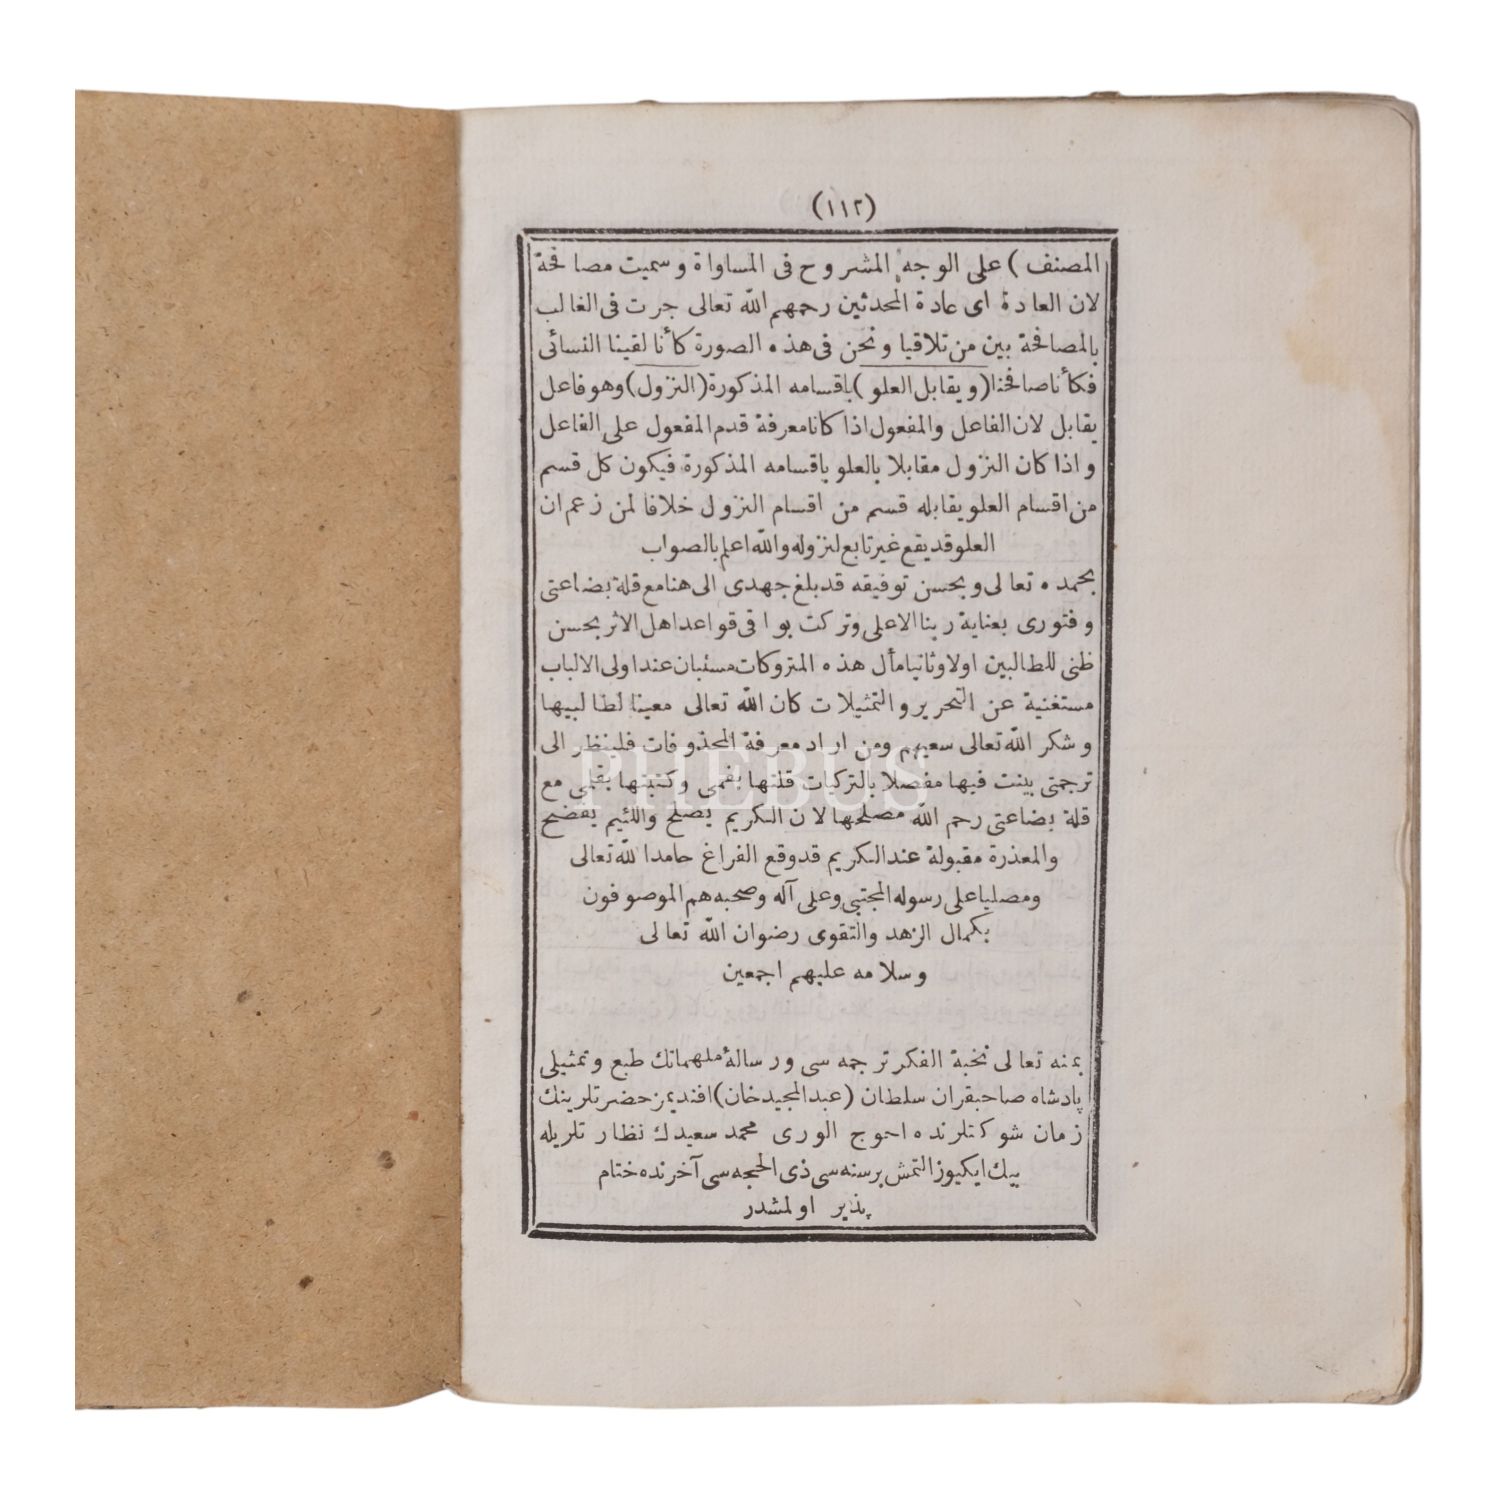 (١١٢)
المصنف) على الوجه المشروح فى المساواة وسميت مصافحة
لان العادة اى عادة المحدثين رحمهم الله تعالى جرت فى الغالب
بالمصافحة بين من تلاقيا ونحن فى هذه الصورة كأنا لقينا النسائى
فكأنا صافحنا (ويقابل العلو) باقسامه المذكورة (النزول) وهو فاعل
يقابل لان الفاعل والمفعول اذا كانا معرفة قدم المفعول على الفاعل
واذا كان النزول مقابلا بالعلو باقسامه المذكورة فيكون كل قسم
من اقسام العلو يقابله قسم من اقسام النزول خلافا لمن زعم ان
العلو قد يقع غير تابع لنزوله والله اعلم بالصواب
بحمده تعالى وبحسن توفيقه قد بلغ جهدى الى هنا مع قلة بضاعتى
وفتورى بعناية ربنا الاعلى وتركت بواقى قواعد اهل الاثر بحسن
ظنى للطالبين اولا وثانيا مأل هذه المتروكات مستبان عند اولى الالباب
مستغنية عن التحرير والتمثيلات كان الله تعالى معينا لطالبيها
وشكر الله تعالى سعيهم ومن اراد معرفة المحذوفات فلينظر الى
ترجمتى بينت فيها مفصلا بالتركيات قلتها بفمى وكتبتها بقلمى مع
قلة بضاعتى رحم الله مصلحها لان الكريم يصلح واللئيم يفضح
والمعذرة مقبولة عند الكريم قد وقع الفراغ حامدا لله تعالى
ومصليا على رسوله المجتبى وعلى آله وصحبه هم الموصوفون
بكمال الزهد والتقوى رضوان الله تعالى
وسلامه عليهم اجمعين
بمنه تعالى نخبة الفكر ترجمه سى ورسالۀ ملهماتك طبع وتمثيلى
پادشاه صاحبقران سلطان (عبد المجيد خان) افنديمز حضرتلرينك
زمان شوكتلرنده احوج الورى محمد سعيدك نظارتلريله
بيك ايكيوز التمش بر سنه سى ذى الحجه سى آخرنده ختام
پذير اولمشدر
PHEBUS